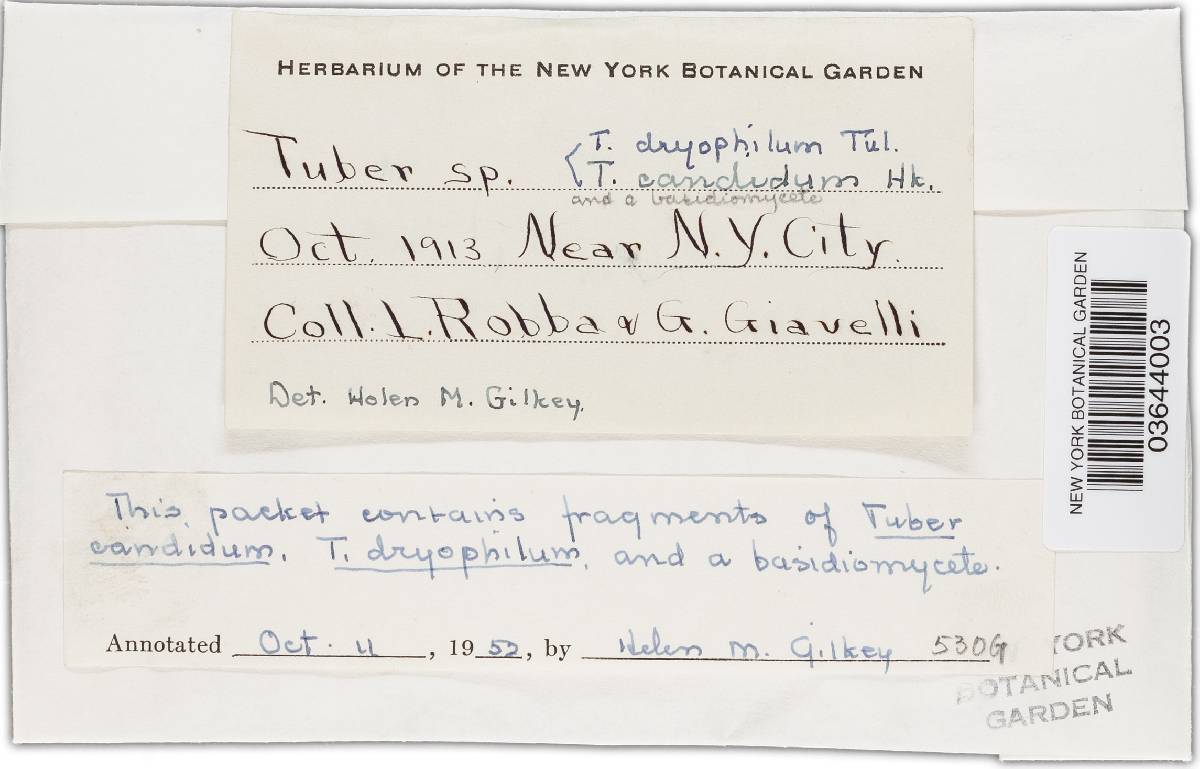 HERBARIUM OF THE NEW YORK BOTANICAL GARDEN
Tuber sp. { T. dryophilum Tul.
T. candidum Hk.
and a basidiomycete
Oct. 1913 Near N.Y. City.
Coll. L. Robba & G. Giavelli
Det. Helen M. Gilkey.
NEW YORK BOTANICAL GARDEN
03644003
This packet contains fragments of Tuber
candidum, T. dryophilum, and a basidiomycete.
Annotated Oct. 11, 1952, by Helen M. Gilkey 530G
YORK
BOTANICAL
GARDEN